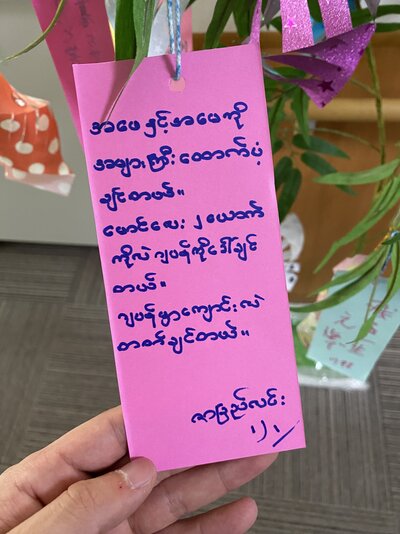 အမေ နှင့် အဖေ ကို
အများကြီး ထောက်ပံ့
ချင်တယ်။
မောင်လေး ၂ ယောက်
ကိုလဲ ဂျပန်ကိုခေါ်ချင်
တယ်။
ဂျပန်မှာကျောင်းလဲ
တတ်ချင်တယ်။
ဇာခြည်လင်း